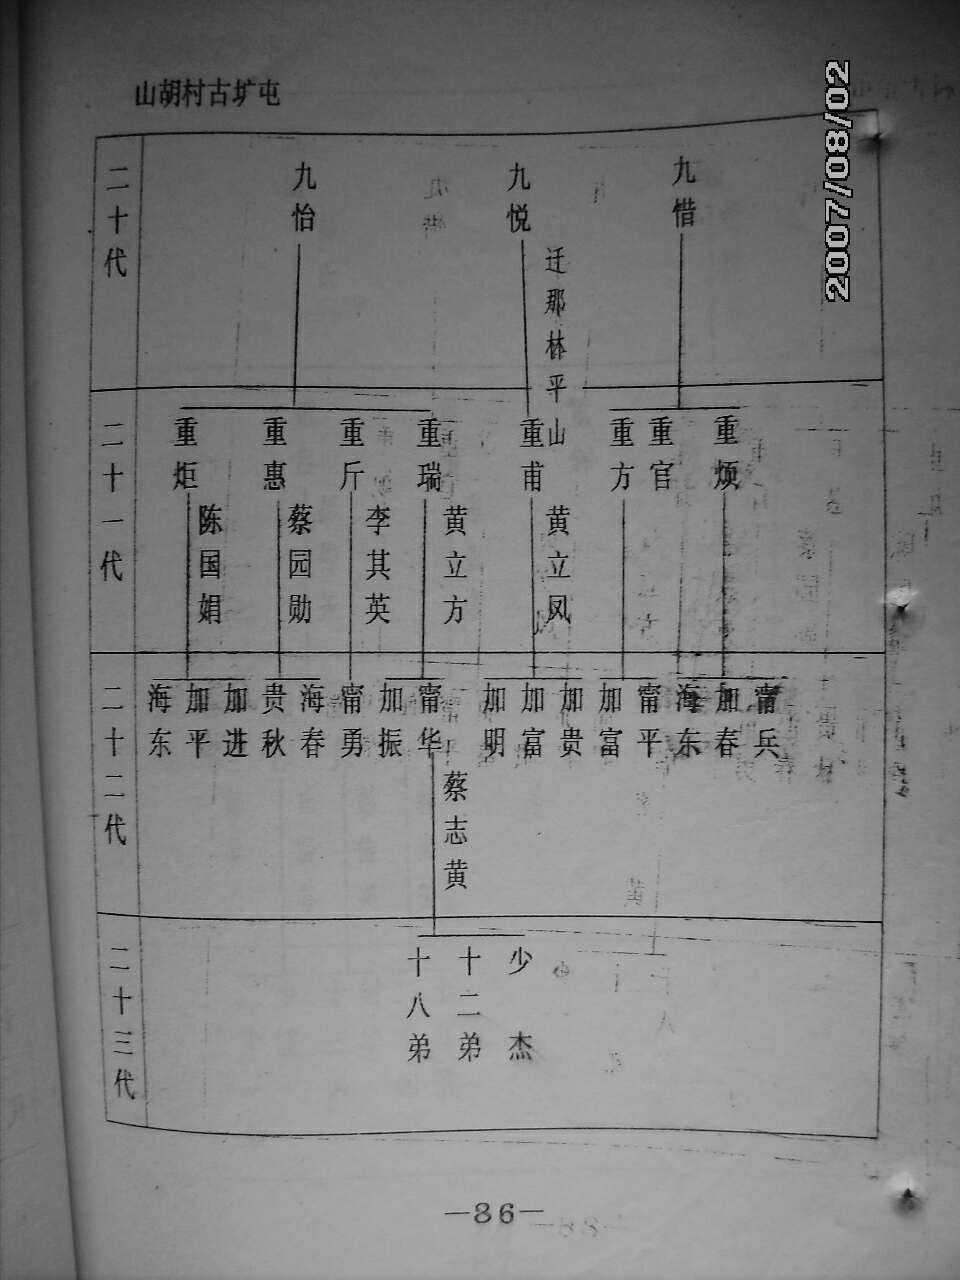 山胡村古圹屯
2007/08/02
二十代
九怡
九悦
迁那林平山
九惜
二十一代
重炬
陈国娟
重惠
蔡园勋
重斤
李其英
重瑞
黄立方
重甫
黄立凤
重方
重官
重烦
二十二代
海东
加平
加进
贵秋
海春
甯勇
加振
甯华
蔡志黄
加明
加富
加贵
加富
甯平
海东
加春
甯兵
二十三代
十八弟
十二弟
少杰
—36—